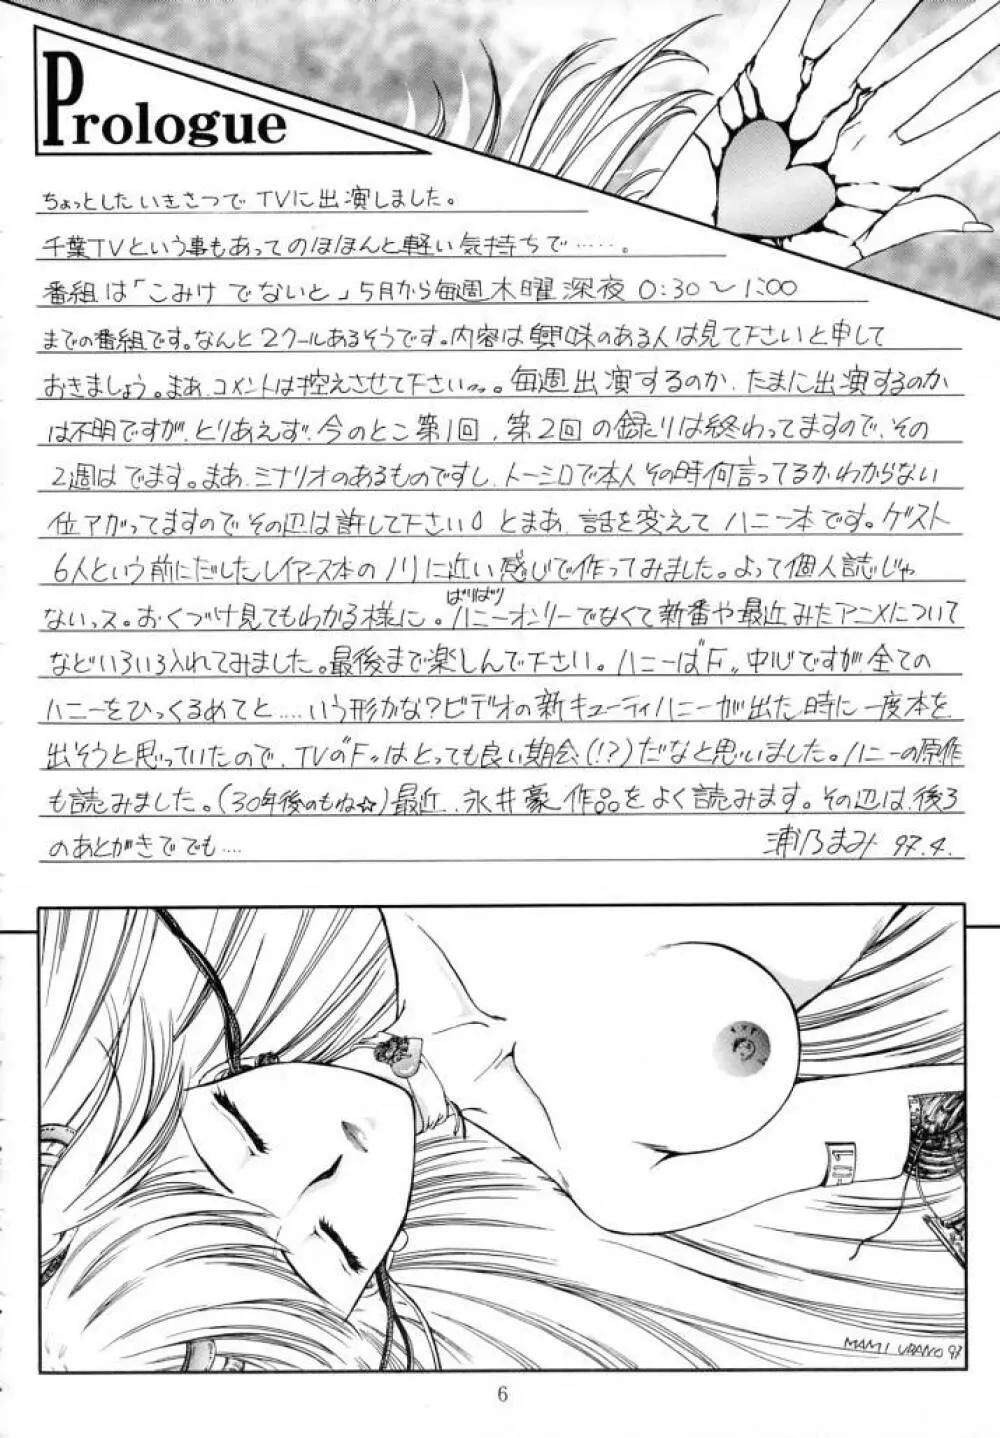 Prologue
ちょっとしたいきさつでTVに出演しました。
千葉TVという事もあってのほほんと軽い気持ちで……。
番組は「こみけでないと」5月から毎週木曜深夜0:30〜1:00
までの番組です。なんと2クールあるそうです。内容は興味のある人は見て下さいと申して
おきましょう。まぁ、コメントは控えさせて下さい…。毎週出演するのか、たまに出演するのか
は不明ですが、とりあえず、今のとこ第1回、第2回の録りは終わってますので、その
2週はでます。まあ、シナリオのあるものですし、トーシロで本人その時何言ってるかわからない
位アガってますのでその辺は許して下さい。とまあ、話を変えてハニー本です。ゲスト
6人という前にだしたレイアース本のノリに近い感じで作ってみました。よって個人誌じゃ
ないっス。おくづけ見てもわかる様に。ハニーオンリーでなくて新番や最近みたアニメについて
ばりばり
などいろいろ入れてみました。最後まで楽しんで下さい。ハニーは"F"中心ですが全ての
ハニーをひっくるめてと……いう形かな?ビデオの新キューティハニーが出た時に一度本を
出そうと思っていたので、TVの"F"はとっても良い期会(!?)だなと思いました。ハニーの原作
も読みました。(30年後のもね☆)最近、永井豪作品をよく読みます。その辺は、後ろ
のあとがきででも…
浦乃まみ 97.4.
MAMI URANO 97
6